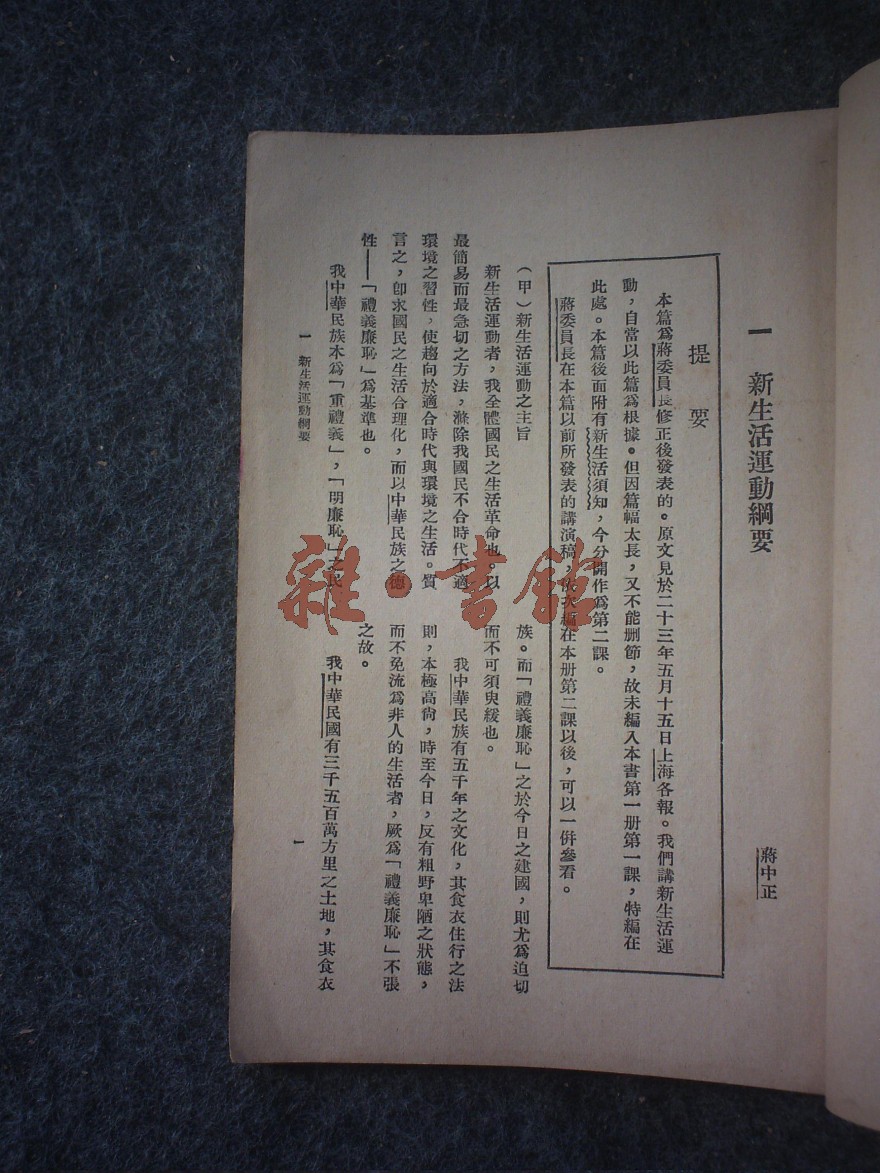 一　新生活運動綱要
蔣中正
提要
本篇爲蔣委員長修正後發表的。原文見於二十三年五月十五日上海各報。我們講新生活運
動，自當以此篇爲根據。但因篇幅太長，又不能删節，故未編入本書第一册第一課，特編在
此處。本篇後面附有新生活須知，今分開作爲第二課。
蔣委員長在本篇以前所發表的講演稿，依次編在本册第二課以後，可以一併參看。
（甲）新生活運動之主旨
新生活運動者，我全體國民之生活革命也，以
最簡易而最急切之方法，滌除我國民不合時代不適
環境之習性，使趨向於適合時代與環境之生活。質
言之，卽求國民之生活合理化，而以中華民族之德
性——「禮義廉恥」爲基準也。
我中華民族本爲「重禮義」，「明廉恥」之民
族。而「禮義廉恥」之於今日之建國，則尤爲迫切
而不可須臾緩也。
我中華民族有五千年之文化，其食衣住行之法
則，本極高尙，時至今日，反有粗野卑陋之狀態，
而不免流爲非人的生活者，厥爲「禮義廉恥」不張
之故。
我中華民國有三千五百萬方里之土地，其食衣
一　新生活運動綱要
一
雜·書館